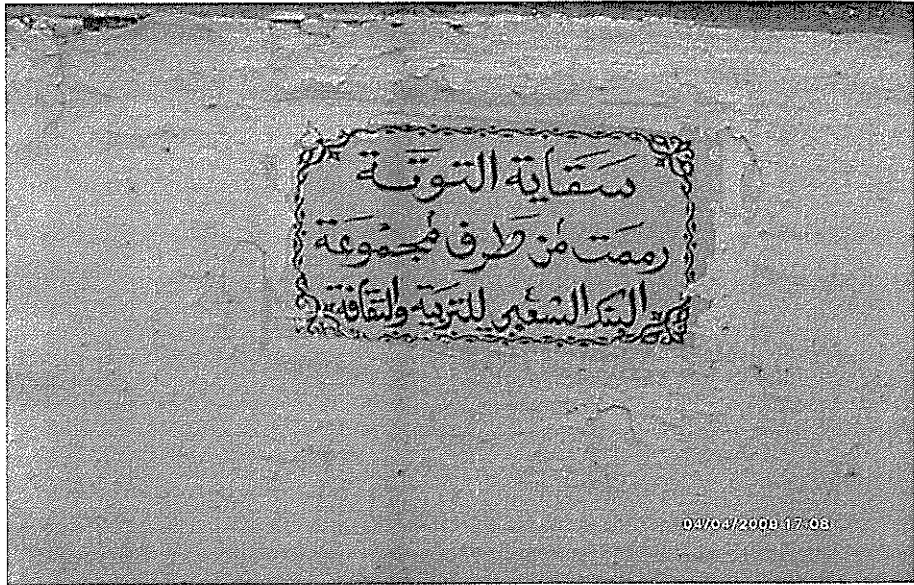 سقاية التوتة
رممت من طرف مجموعة
البنك الشعبي للتربية والثقافة
04/04/2009 17:08